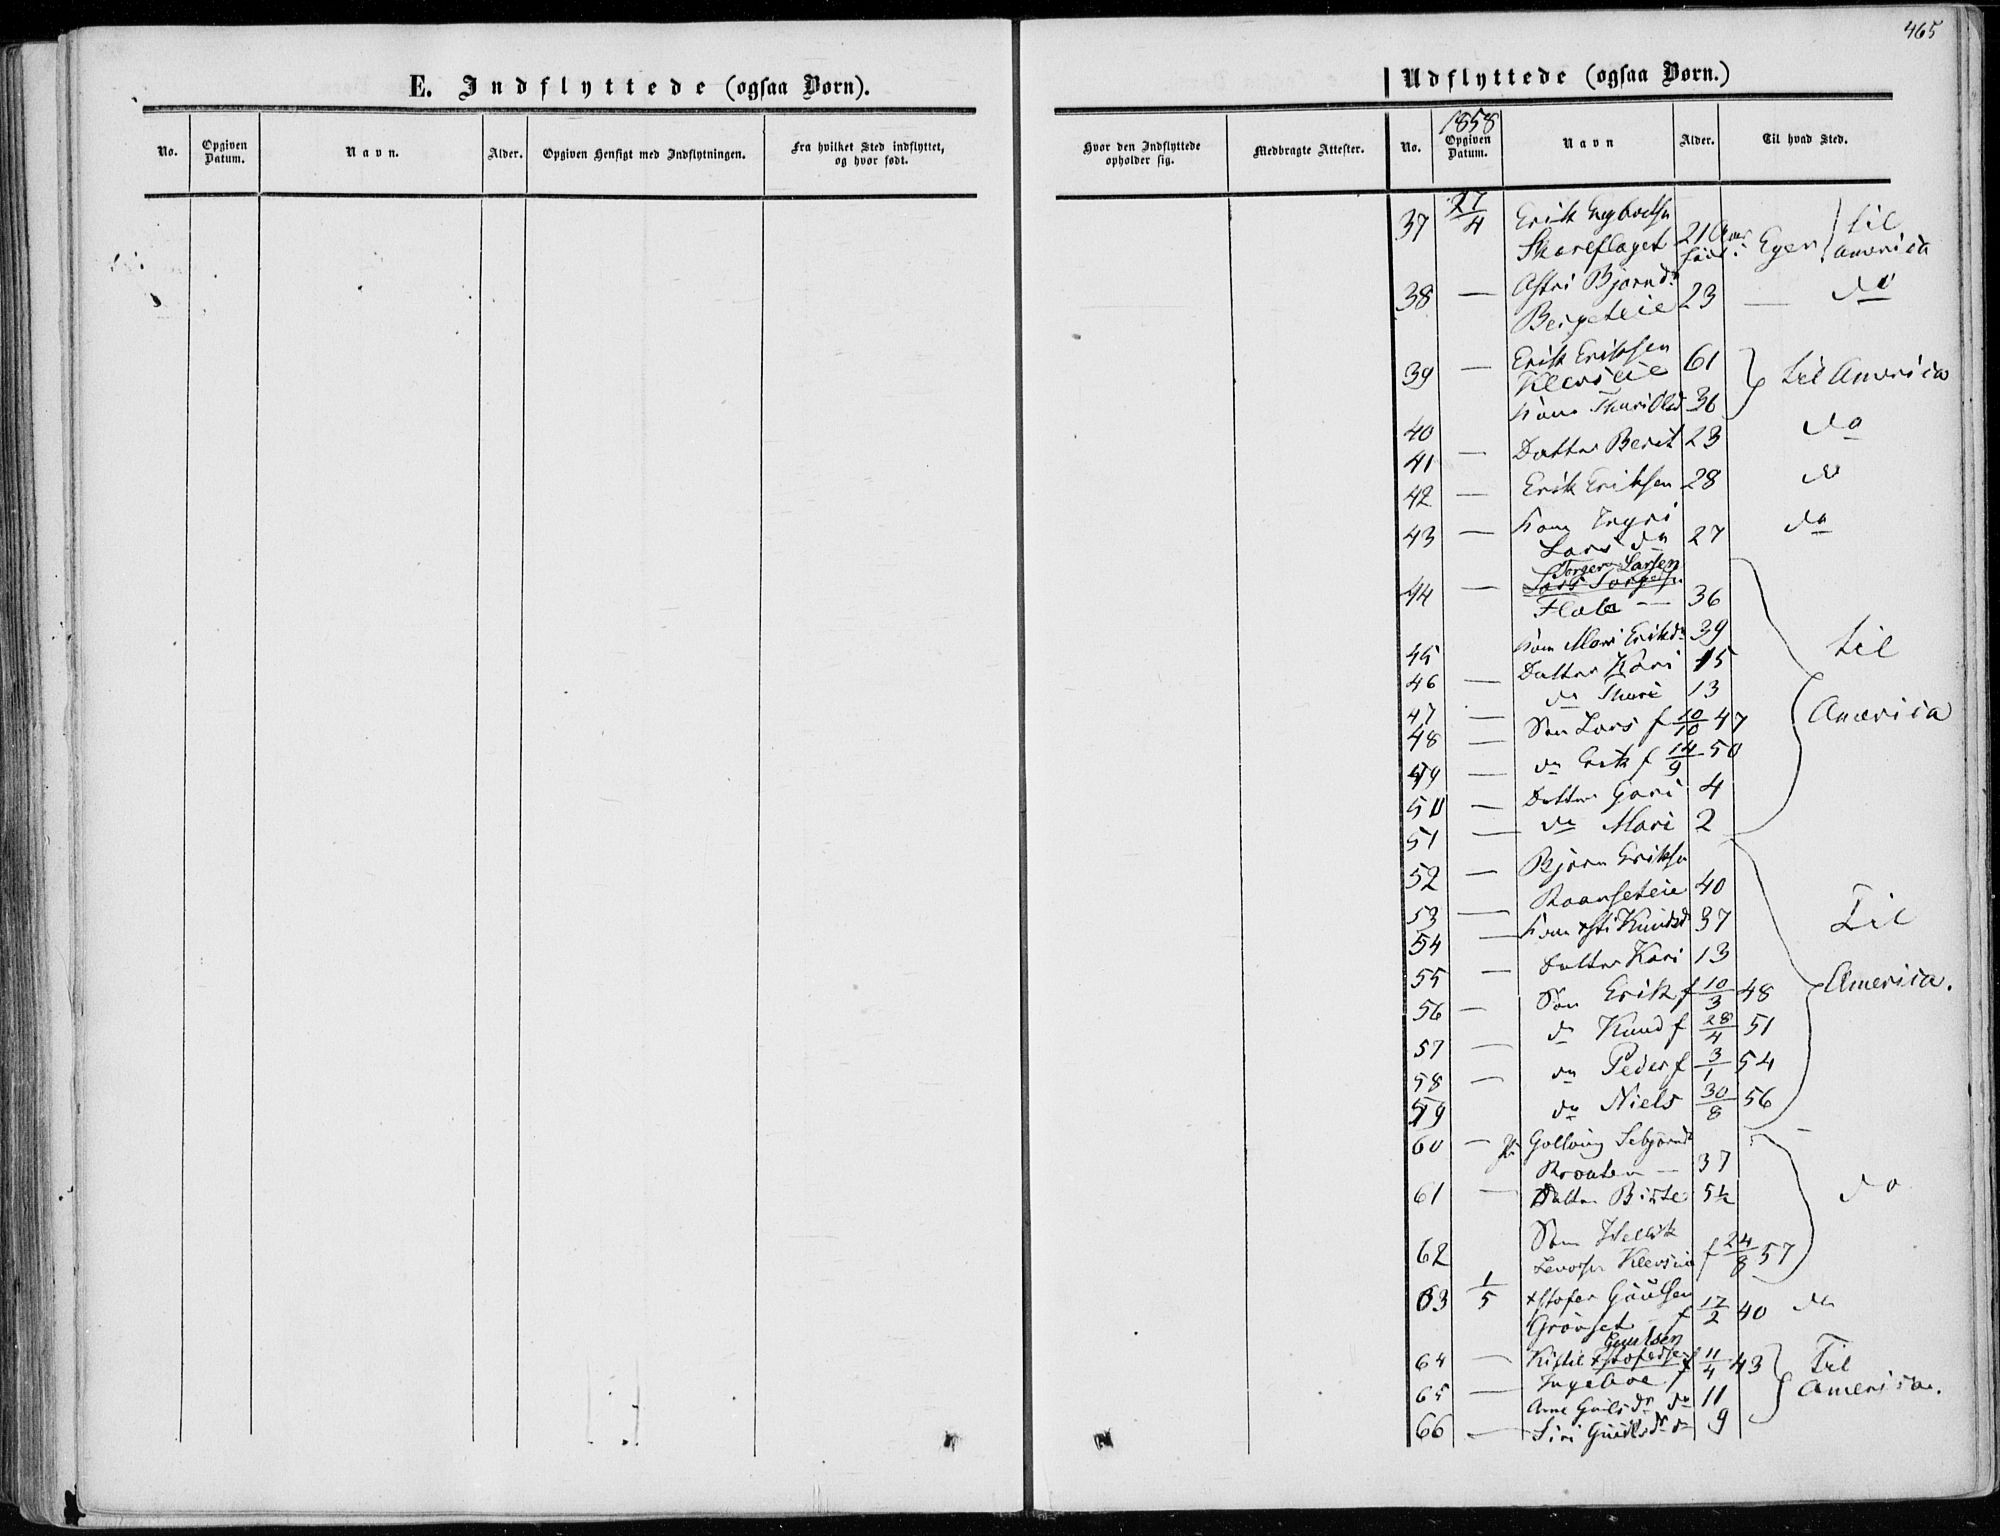 465
E. Indflyttede (ogsaa Børn).
No. Opgiven Datum. Navn. Alder. Opgiven Hensigt med Indflytningen. Fra hvilket Sted indflyttet, og hvor født.
Udflyttede (ogsaa Børn.)
Hvor den Indflyttede opholder sig. Medbragte Attester. No. 1858 Opgiven Datum. Navn Alder. Til hvad Sted.
37 27/4 Erik
21 Eger til
America
38 — Astri Bjørnd.
23 — do
39 — Erik Eriksen 61
til America
40 Kone Thuri Olsd 36
do
41 — Datter Berit 23
42 — Erik Eriksen 28 do
43 — Kone Ingri
Lars dr 27 do
44 — Torger Larsen
Lars Torgersn
Flata — 36
45 Kone Mari Eriksdr 39 til
46 — Datter Kari 15
47 — do Thuri 13
48 — Søn Lars f 10/10 47 America
49 — do Erik f 14/9 50
50 — Datter Gøri 4
51 — do Mari 2
52 — Bjørn Eriksn
40
53 — Kone Knudsd 37 Til
54 — Datter Kari 13
55 — Søn Erik f 10/3 48 America.
56 — do Knud f 28/4 51
57 — do Peder f 3/1 54
58 — do Niels 30/8 56
59
60 —
37
61 — Datter Birte 5½ do
62 Søn
f 24/8 57
63 1/5 Xstofer Guulsen
Grønset f 17/2 40 do
Guulsen
64 — Kittil Xstofersen f 11/4 43 Til
65 — America.
11
66 — Siri Guulsdr do 9